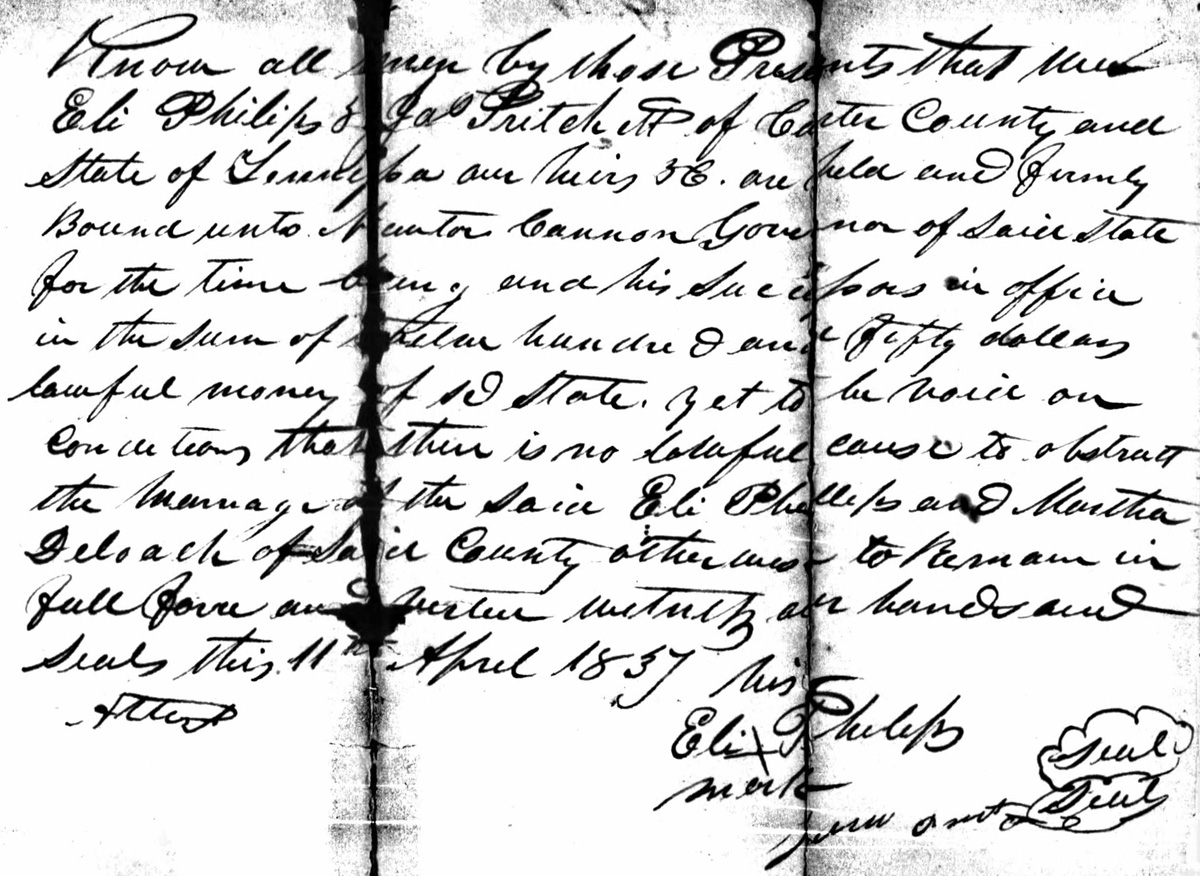 Know all men by those Presents that wee
Eli Philips & Jas Pritchett of Carter County and
State of Tennessee our heirs &C. are held and firmly
Bound unto Newton Cannon Governor of Said State
for the time being and his Successors in office
in the Sum of twelve hundred and fifty dollars
lawful money of sd State. yet to be void on
Conditions that ther is no lawful cause to obstruct
the Marriage of the Said Eli Phillips and Martha
Deloach of Said County otherwise to Remain in
full force and vertue witness our hands and
Seals this 11th April 1837
Attest
his
Eli X Philips Seal
mark
Seal